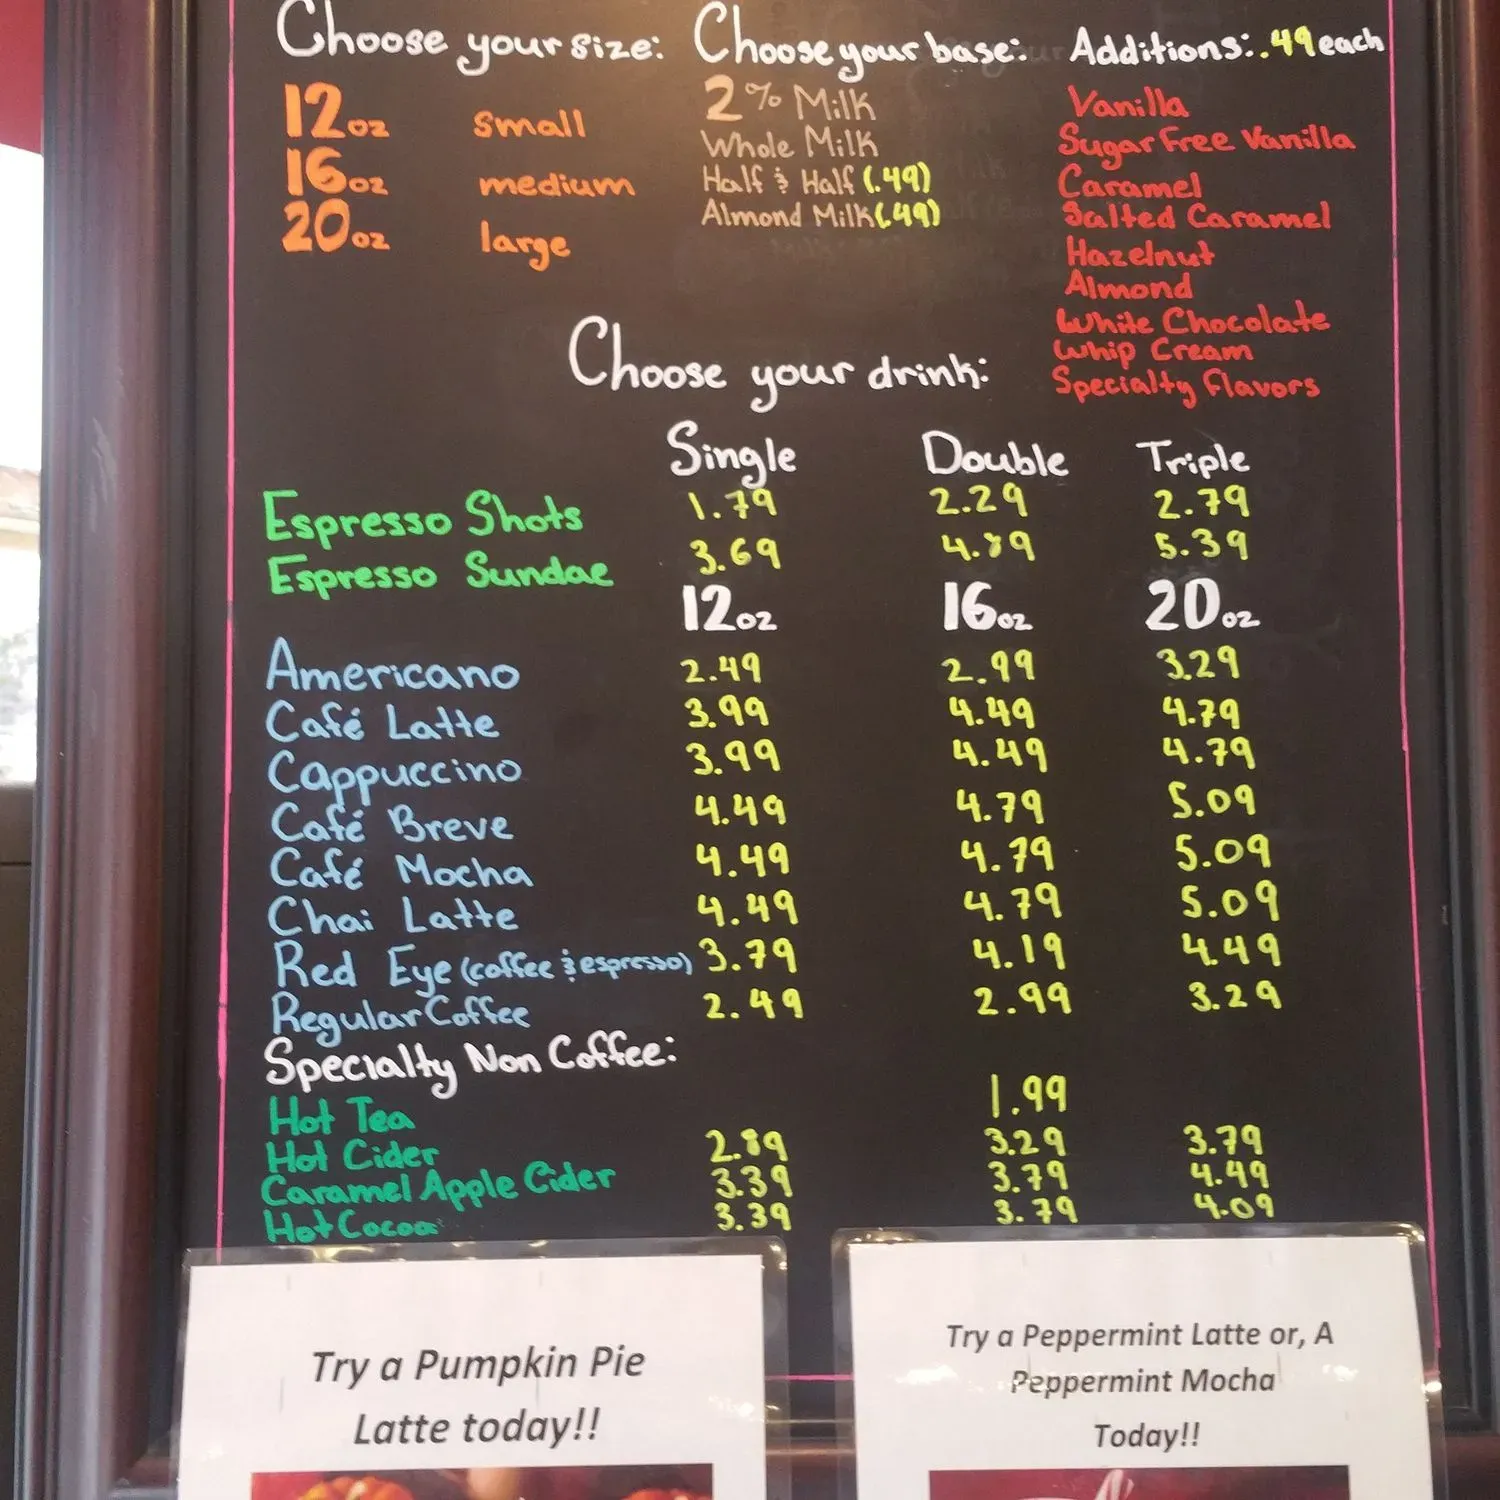 Choose your size:
12oz small
16oz medium
20oz large
Choose your base:
2% Milk
Whole Milk
Half & Half (.49)
Almond Milk (.49)
Additions: .49 each
Vanilla
Sugar Free Vanilla
Caramel
Salted Caramel
Hazelnut
Almond
White Chocolate
Whip Cream
Specialty Flavors
Choose your drink:
Single Double Triple
Espresso Shots 1.79 2.29 2.79
Espresso Sundae 3.69 4.89 5.39
12oz 16oz 20oz
Americano 2.49 2.99 3.29
Café Latte 3.99 4.49 4.79
Cappuccino 3.99 4.49 4.79
Café Breve 4.49 4.79 5.09
Café Mocha 4.49 4.79 5.09
Chai Latte 4.49 4.79 5.09
Red Eye (coffee & espresso) 3.79 4.19 4.49
Regular Coffee 2.49 2.99 3.29
Specialty Non Coffee:
Hot Tea 1.99
Hot Cider 2.89 3.29 3.79
Caramel Apple Cider 3.39 3.79 4.49
Hot Cocoa 3.39 3.79 4.09
Try a Pumpkin Pie
Latte today!!
Try a Peppermint Latte or, A
Peppermint Mocha
Today!!